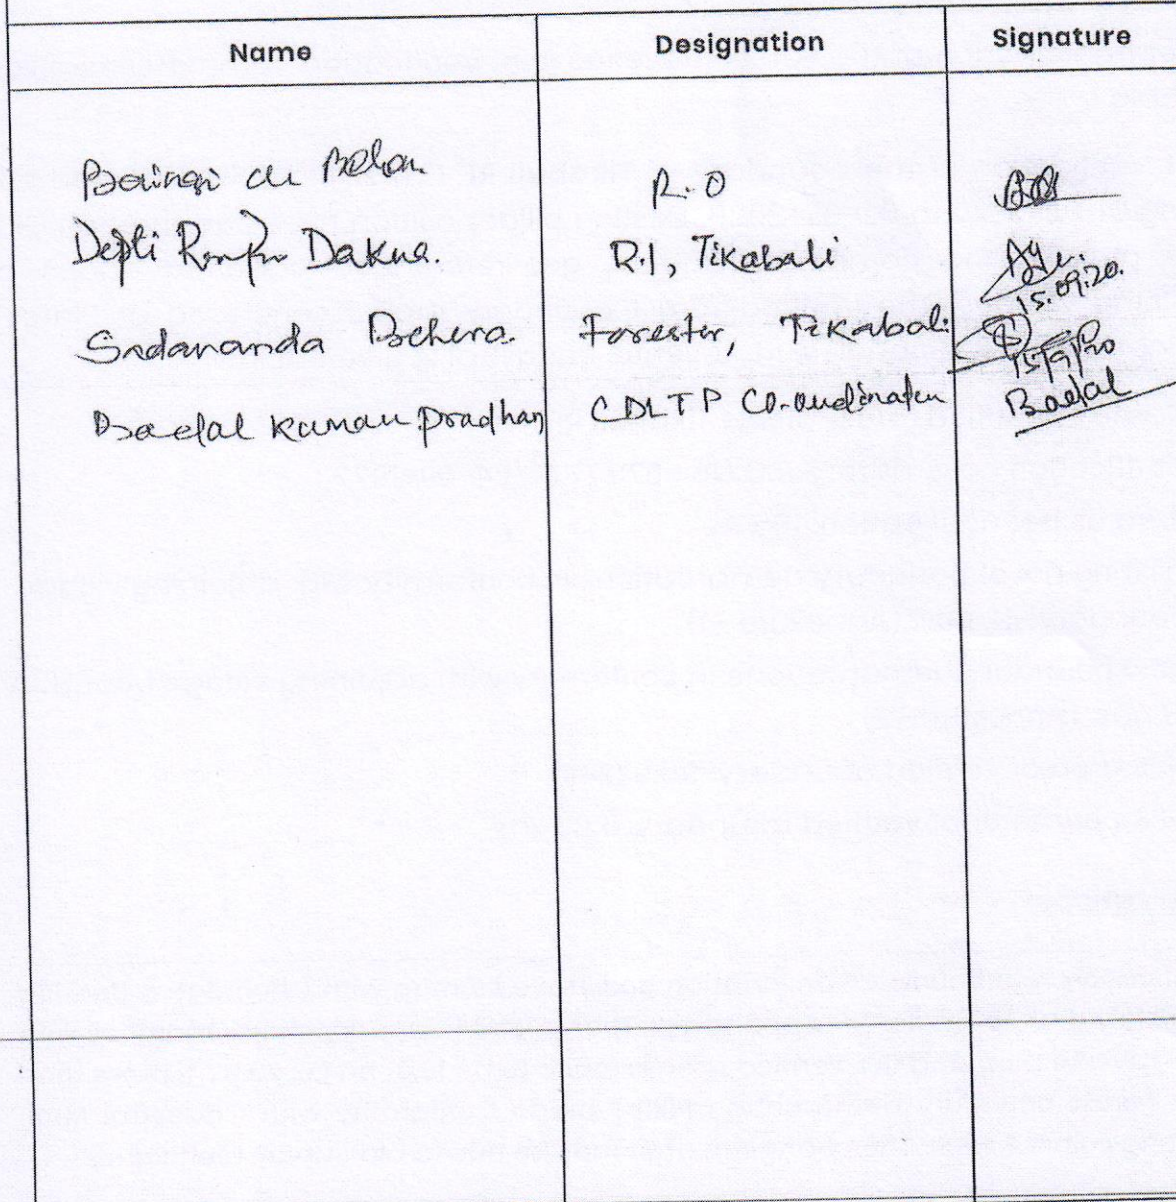 Name Designation Signature
R.O
Dipti Dakua. R.I, Tikabali
15.09.20.
Sadananda Behera. Forester, Tikabali
15/9/20
Badal Kumar Pradhan CDLTP Co-ordinator Badal